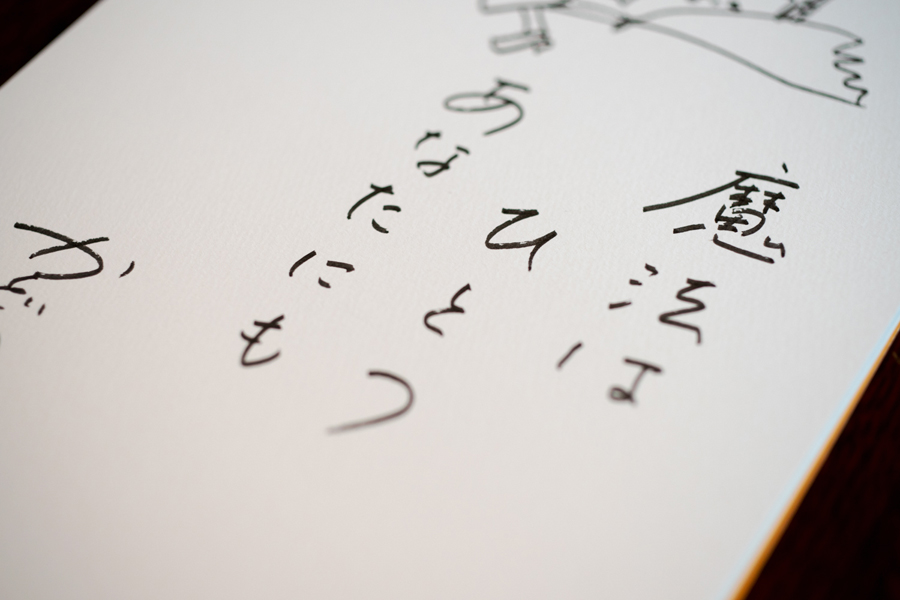 魔法は
ひとつ
あなたにも